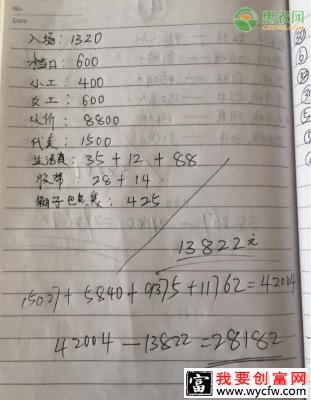 惠农网
No.
Date
入场:1320
档口:600
小工:400
女工:600
运价:8800
代卖:1500
生活费:35+12+88
胶带:28+14
箱子包装袋:425
13822元
15027+5840+9375+11762=42004
42004-13822=28182
富
我要创富网
www.wycfw.com